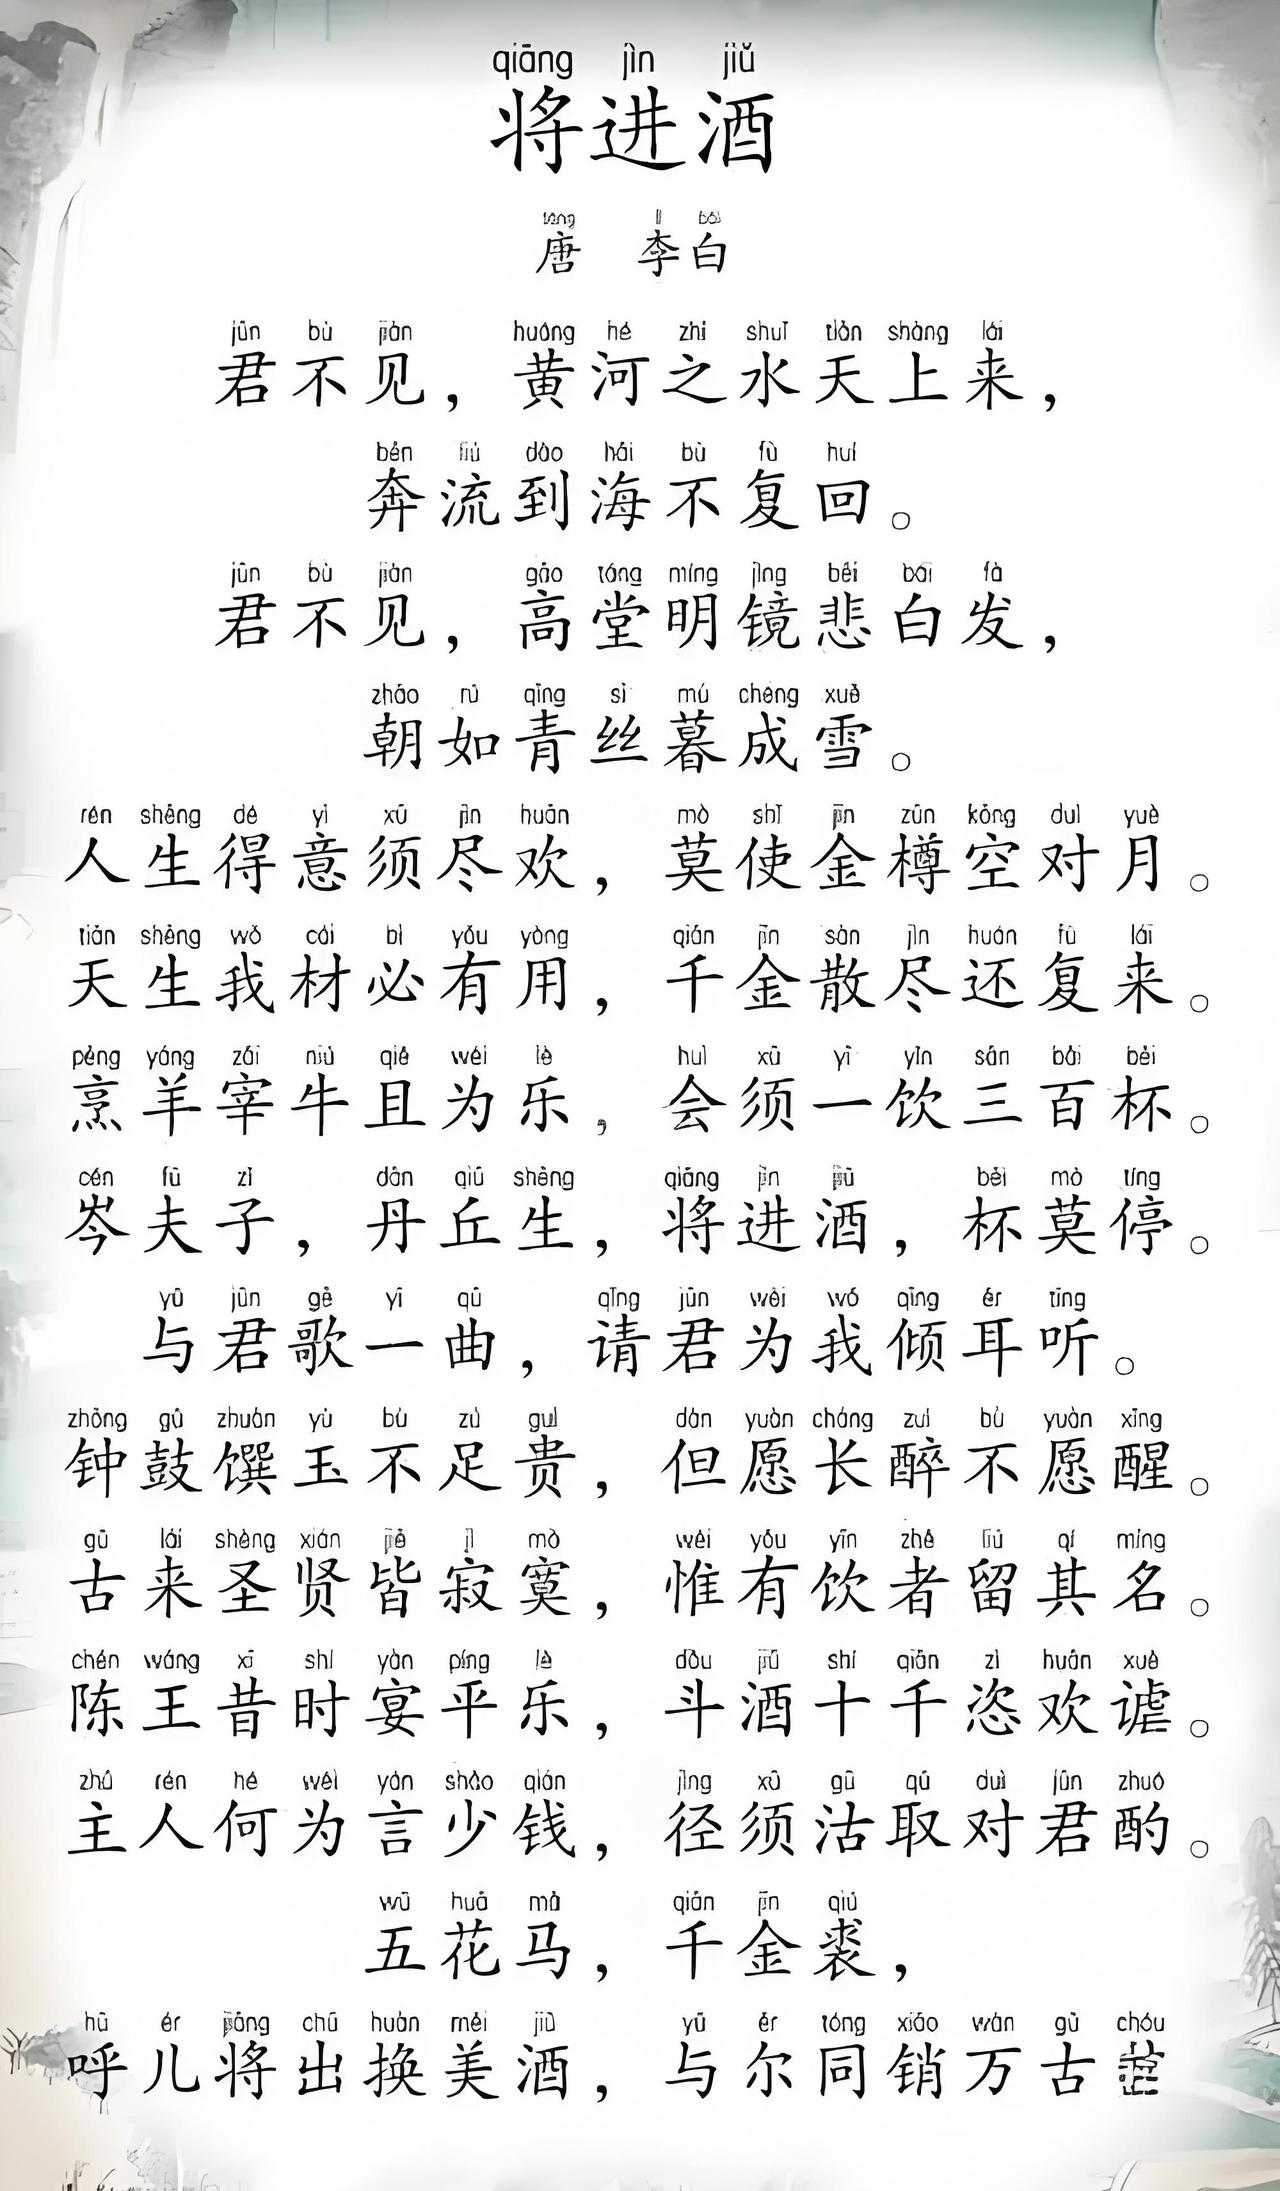 qiāng jìn jiǔ
将进酒
táng lǐ bái
唐 李白
jūn bù jiàn huáng hé zhī shuǐ tiān shàng lái
君不见，黄河之水天上来，
bēn liú dào hǎi bù fù huí
奔流到海不复回。
jūn bù jiàn gāo táng míng jìng bēi bái fà
君不见，高堂明镜悲白发，
zhāo rú qīng sī mù chéng xuě
朝如青丝暮成雪。
rén shēng dé yì xū jìn huān mò shǐ jīn zūn kōng duì yuè
人生得意须尽欢，莫使金樽空对月。
tiān shēng wǒ cái bì yǒu yòng qiān jīn sàn jìn huán fù lái
天生我材必有用，千金散尽还复来。
pēng yáng zǎi niú qiě wéi lè huì xū yì yǐn sān bǎi bēi
烹羊宰牛且为乐，会须一饮三百杯。
cén fū zǐ dān qiū shēng qiāng jìn jiǔ bēi mò tíng
岑夫子，丹丘生，将进酒，杯莫停。
yǔ jūn gē yì qǔ qǐng jūn wèi wǒ qīng ěr tīng
与君歌一曲，请君为我倾耳听。
zhōng gǔ zhuàn yù bù zú guì dàn yuàn cháng zuì bù yuàn xǐng
钟鼓馔玉不足贵，但愿长醉不愿醒。
gǔ lái shèng xián jiē jì mò wéi yǒu yǐn zhě liú qí míng
古来圣贤皆寂寞，惟有饮者留其名。
chén wáng xī shí yàn píng lè dǒu jiǔ shí qiān zì huān xuè
陈王昔时宴平乐，斗酒十千恣欢谑。
zhǔ rén hé wèi yán shǎo qián jìng xū gū qǔ duì jūn zhuó
主人何为言少钱，径须沽取对君酌。
wǔ huā mǎ qiān jīn qiú
五花马，千金裘，
hū ér jiāng chū huàn měi jiǔ yǔ ěr tóng xiāo wàn gǔ chóu
呼儿将出换美酒，与尔同销万古